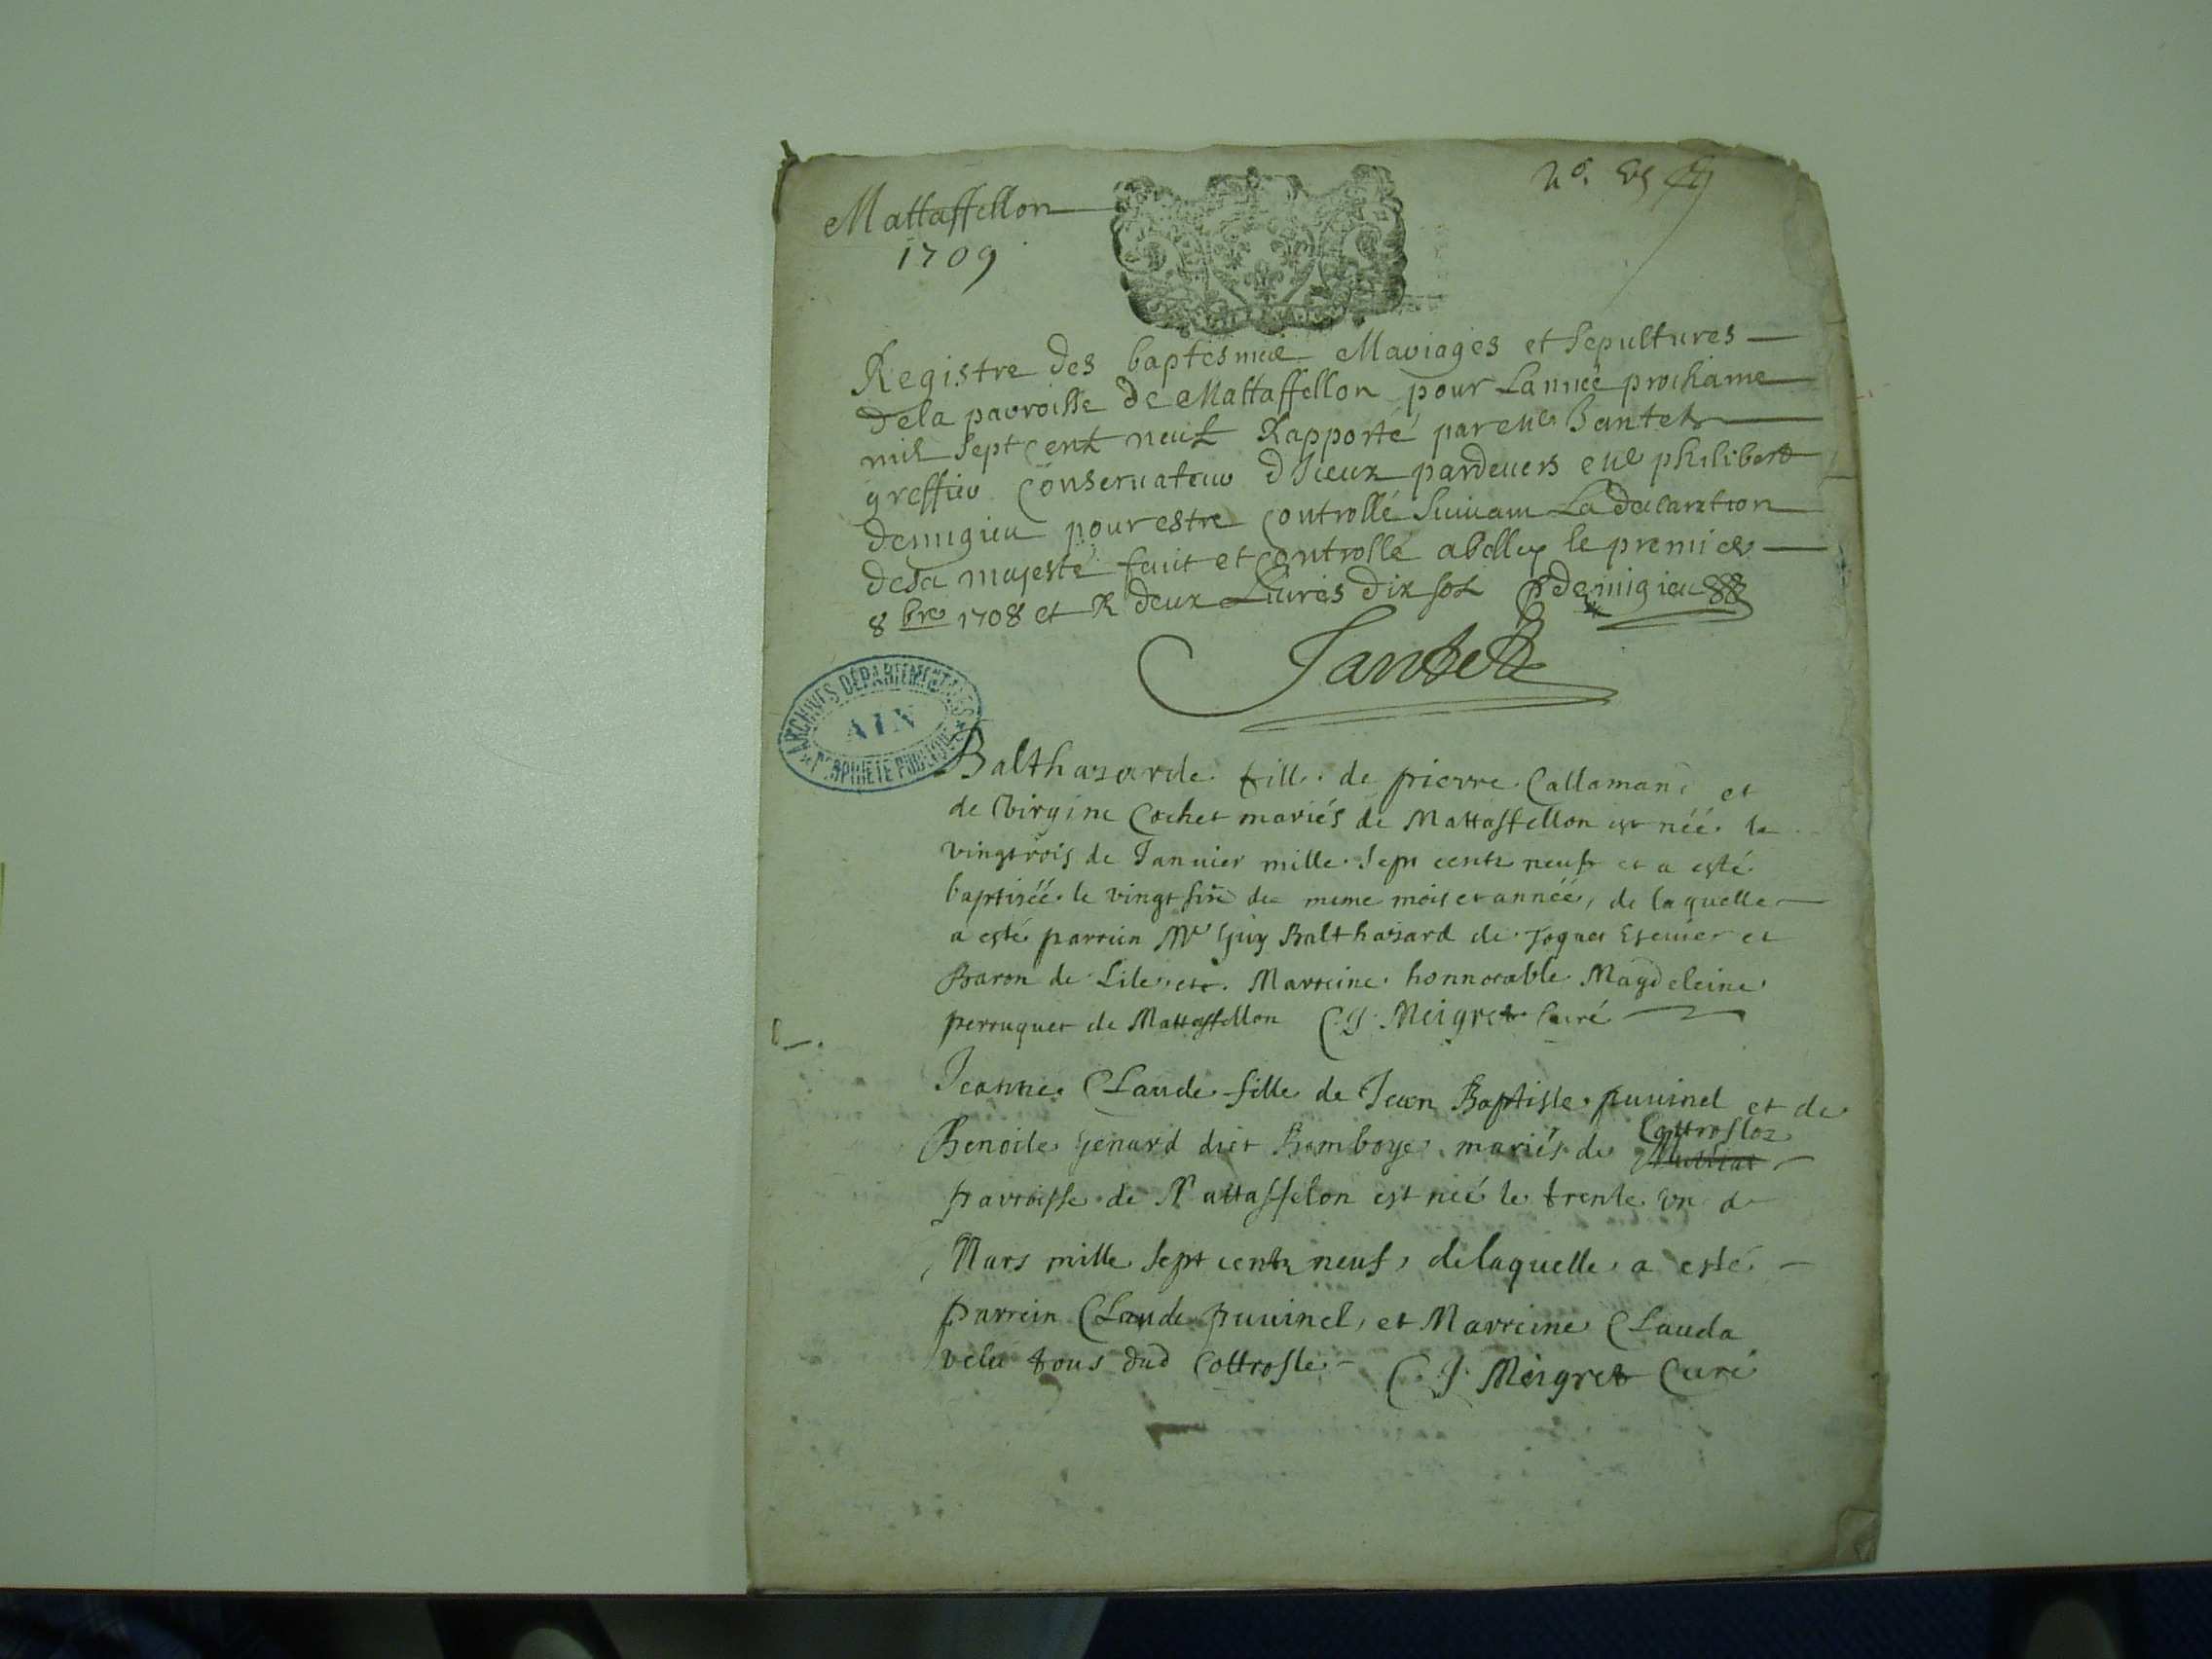 Mattaffellon
1709
Registre des baptesme Mariages et Sepultures
de la parroisse de Mattaffellon pour Lannee prochaine
mil Sept Cent neuf Rapporté par Me Jantet
greffier Conservateur dIceux pardevers Me philibert
demigieu pour estre Controllé Suivant La declaration
de sa majesté fait et Controllé a belley le premier
8 bre 1708 et R deux Livres dix sols P demigieu
Jantet
ARCHIVES DÉPARTEMENTALES
AIN
PROPRIÉTÉ PUBLIQUE
Balthazarde fille de pierre Callamand et
de Virgine Cochet mariés de Mattaffellon est néé le
vingtrois de Janvier mille Sept cents neuf et a esté
baptiséé le vingt six de meme mois et annéé, de laquelle
a esté parrein Mr Guy Balthazard de Escuier et
Baron de Lile et Marreine honnorable Magdeleine
perruquet de Mattaffellon C. J. Meigret Curé
Jeanne Claude fille de Jean Baptiste puvinel et de
Benoite Genard dict Bamboye mariés de Cottrosloz
parroisse de Mattaffelon est neé le trente un de
Mars mille Sept cents neuf, de laquelle a esté
parrein Claude puvinel, et Marreine Clauda
velu tous dud Cottrosle C. J. Meigret Curé